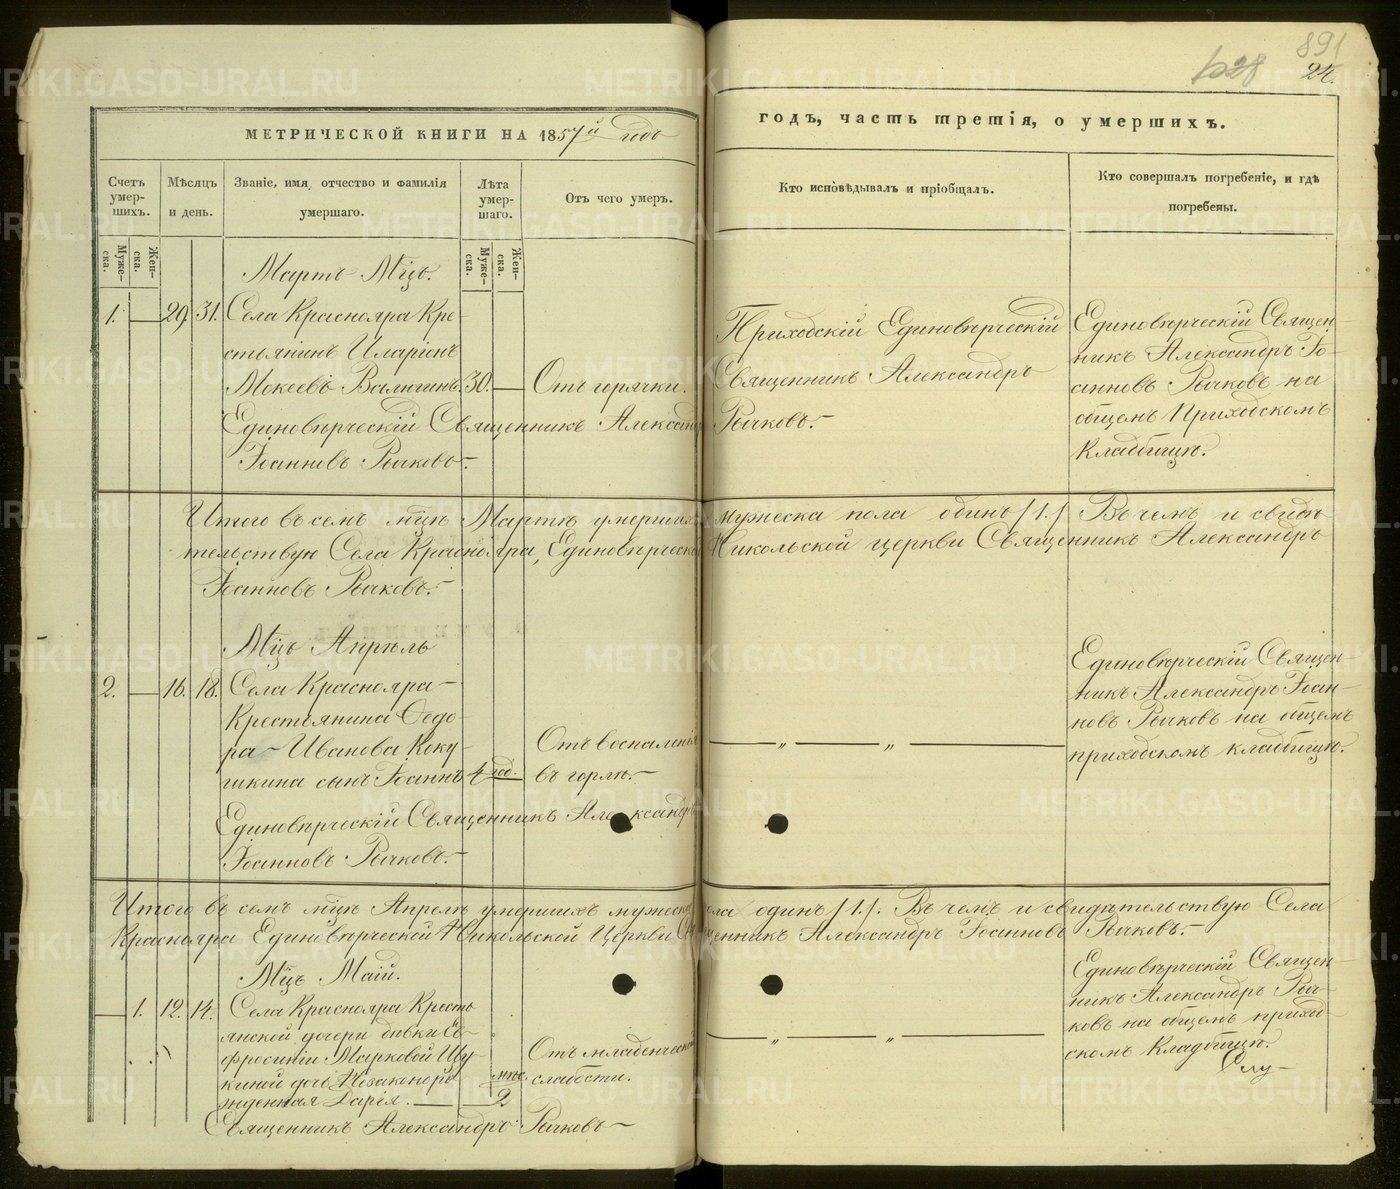 891
24.
МЕТРИЧЕСКОЙ КНИГИ НА 1857й годъ
годъ, часть третія, о умершихъ.
Счетъ умер-шихъ.
Мѣсяцъ и день.
Званіе, имя, отчество и фамилія умершаго.
Лѣта умер-шаго.
Отъ чего умеръ.
Кто исповѣдывалъ и пріобщалъ.
Кто совершалъ погребеніе, и гдѣ погребены.
Муже-ска.
Жен-ска.
Муже-ска.
Жен-ска.
Мартъ Мцъ.
1. — 29. 31. Села Краснояра Кре-
стьянинъ Иларіонъ
Мокеевъ Валягинъ. 30. — Отъ горячки.
Единовѣрческій Священникъ Александръ
Іоанновъ Рычковъ.-
Приходскій Единовѣрческій
Священникъ Александръ
Рычковъ.-
Единовѣрческій Священ-
никъ Александръ Іо-
анновъ Рычковъ на
общемъ Приходскомъ
Кладбищѣ.
Итого въ семъ мцѣ Мартѣ умершихъ мужеска пола одинъ /1./ Въ чемъ и свидѣ-
тельствую Села Краснояра, Единовѣрческой Никольской церкви Священникъ Александръ
Іоанновъ Рычковъ.-
Мцъ Апрѣль
2. — 16. 18. Села Краснояра-
Крестьянина Ѳедо-
ра- Иванова Коку-
шкина сынъ Іоаннъ 4 год.
Отъ воспаленія
въ горлѣ.-
Единовѣрческій Священникъ Александръ
Іоанновъ Рычковъ.-
— „ — „ —
Единовѣрческій Священ-
никъ Александръ Іоан-
новъ Рычковъ на общемъ
приходскомъ кладбищѣ.
Итого въ семъ мцѣ Апрѣлѣ умершихъ мужеска пола одинъ /1./. Въ чемъ и свидѣтельствую Села
Краснояра Единовѣрческой Никольской Церкви Священникъ Александръ Іоанновъ Рычковъ.-
Мцъ Маій.
— 1. 12. 14. Села Краснояра Кресть-
янской дочери дѣвки Ев-
фросиніи Марковой Щу-
киной дочь Незаконоро-
жденная Дарія. — мѣс. 2
Отъ младенческой
слабости.
Священникъ Александръ Рычковъ-
— „ — „ —
Единовѣрческій Священ-
никъ Александръ Рыч-
ковъ на общемъ приход-
скомъ Кладбищѣ.
METRIKI.GASO-URAL.RU